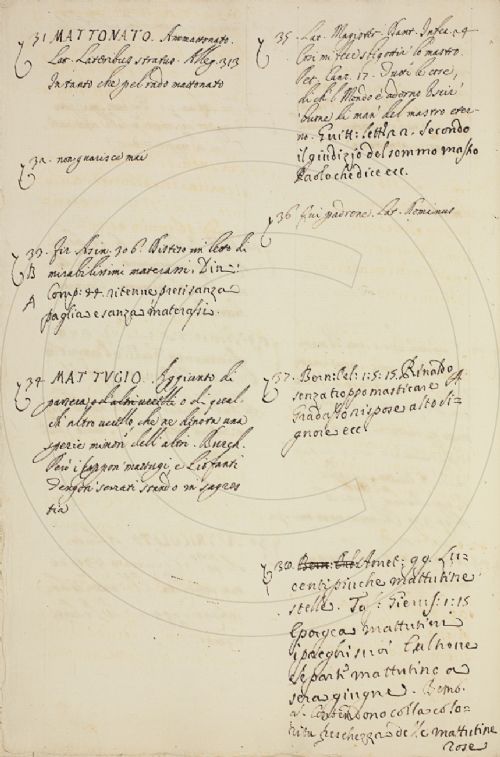 31 MATTONATO. Ammattonato.
Lat. Lateribus stratus. Alleg. 313
Intanto che pel rado mattonato
32. non guarisce mai
33. Fir. Asin. 306. Disteso un letto di
B mirabilissimi materassi. Din:
A Comp: 84. ritenne presi sanza
paglia e sanza materassi.
34. MATTUGIO. Aggiunto di
passera o d'altri uccelli o di qual
ch'altro uccello, che ne denota una
spezie minori dell'altri. Burch.
Però i cappon mattugi, e Liofanti
serrati stando in sagres
tia
35. Lat. Magister. Dant. Inf. c. 24
Così mi fece sbigottir lo mastro.
Pet. canz. 17. Due
di ch'l Mondo è adorno Uscir
buone di man' del mastro eter-
no. Guitt: lett. 2. Secondo
il giudizio del sommo mastro
Paolo che dice ecc.
36. fui padrone. Lat. Dominus
37. Bern: Orl: 1: 5: 15. Rinaldo
senza troppo masticare A
Gradasso rispose alto Si-
gnore ecc.
38. Bern: Orl Amet: 99. Lu-
centi piu che mattutine
stelle. Tass: Gierus: 1: 15
E porgea mattutini
i preghi suoi
mattutino a
sera giugne. Bemb.
contendono colla colo-
rita freschezza delle mattutine
rose